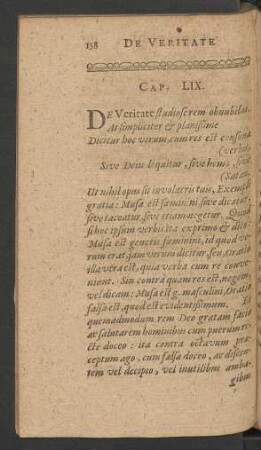 158 DE VERITATE
CAP. LIX.
DE Veritate studiose rem obnubilant
At simpliciter & planissime
Dicitur hoc verum, cum res est consona
(verbis
Sive Deus loquitur, sive homo, sive
(Satan.
Ut nihil opus sit involucris tuis, Exempli
gratia: Musa est fœmin: ni sive dicatur,
sive taceatur, sive etiam negetur.
si hoc ipsum verbis ita exprimo & dico:
Musa est generis fœminini, id quod ve-
rum erat, jam verum dicitur, seu, Oratio
illa vera est, quia verba cum re conve-
niunt. Sin contra quam res est, nego,
vel dicam: Musa est g. masculini, Oratio
falsa est, quod est evidentissimum. Et
quemadmodum rem Deo gratam facio
ac salutarem hominibus cum puerum re-
cte doceo: ita contra octavum præ-
ceptum ago, cum falsa doceo, ac discen-
tem vel decipio, vel inutilibus amba-
gibus